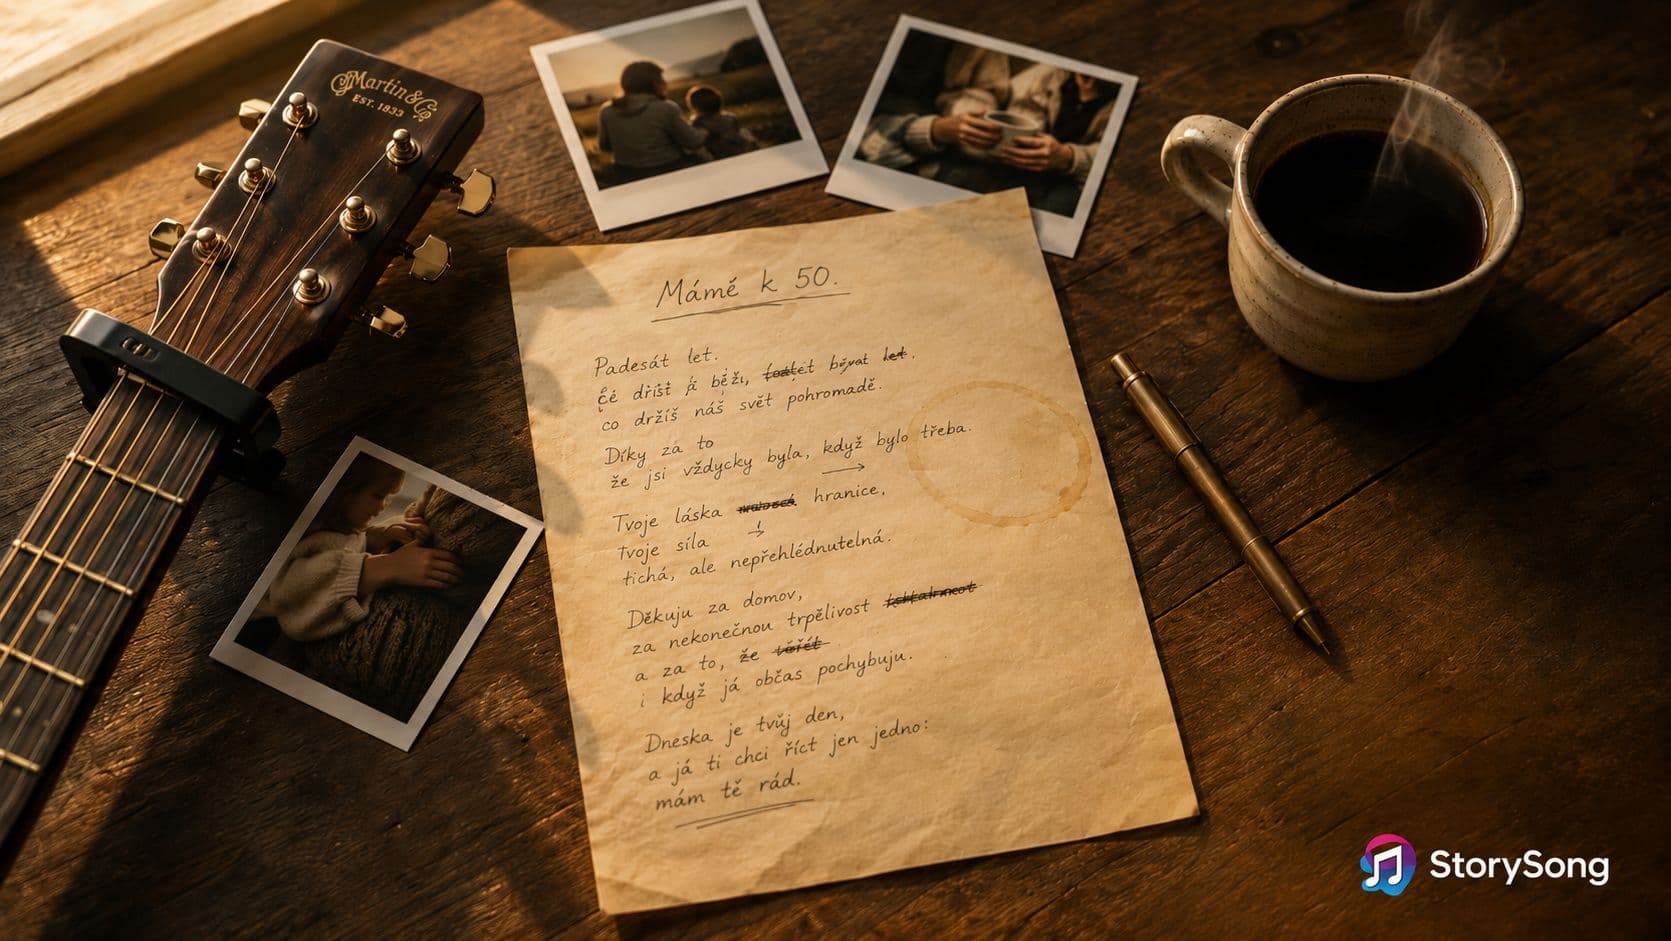 Martin & Co
EST. 1833
Mámě k 50.
Padesát let.
běži, bývat let.
co držíš náš svět pohromadě.
Díky za to
že jsi vždycky byla, když bylo třeba.
Tvoje láska hranice,
tvoje síla
tichá, ale nepřehlédnutelná.
Děkuju za domov,
za nekonečnou trpělivost
a za to, že
i když já občas pochybuju.
Dneska je tvůj den,
a já ti chci říct jen jedno:
mám tě rád.
StorySong